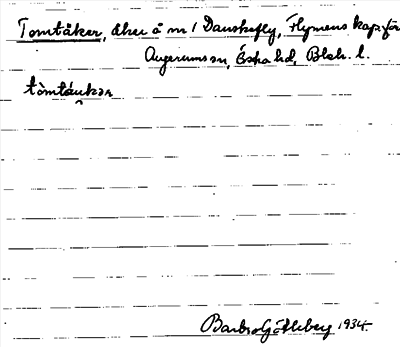 Tomtåker, åker å nr 1 Danskefly, Flymens kapsfõr
Augerums sn, Östra hd, Blek. l.
tòmtáukər
Barbro Götlberg 1934.